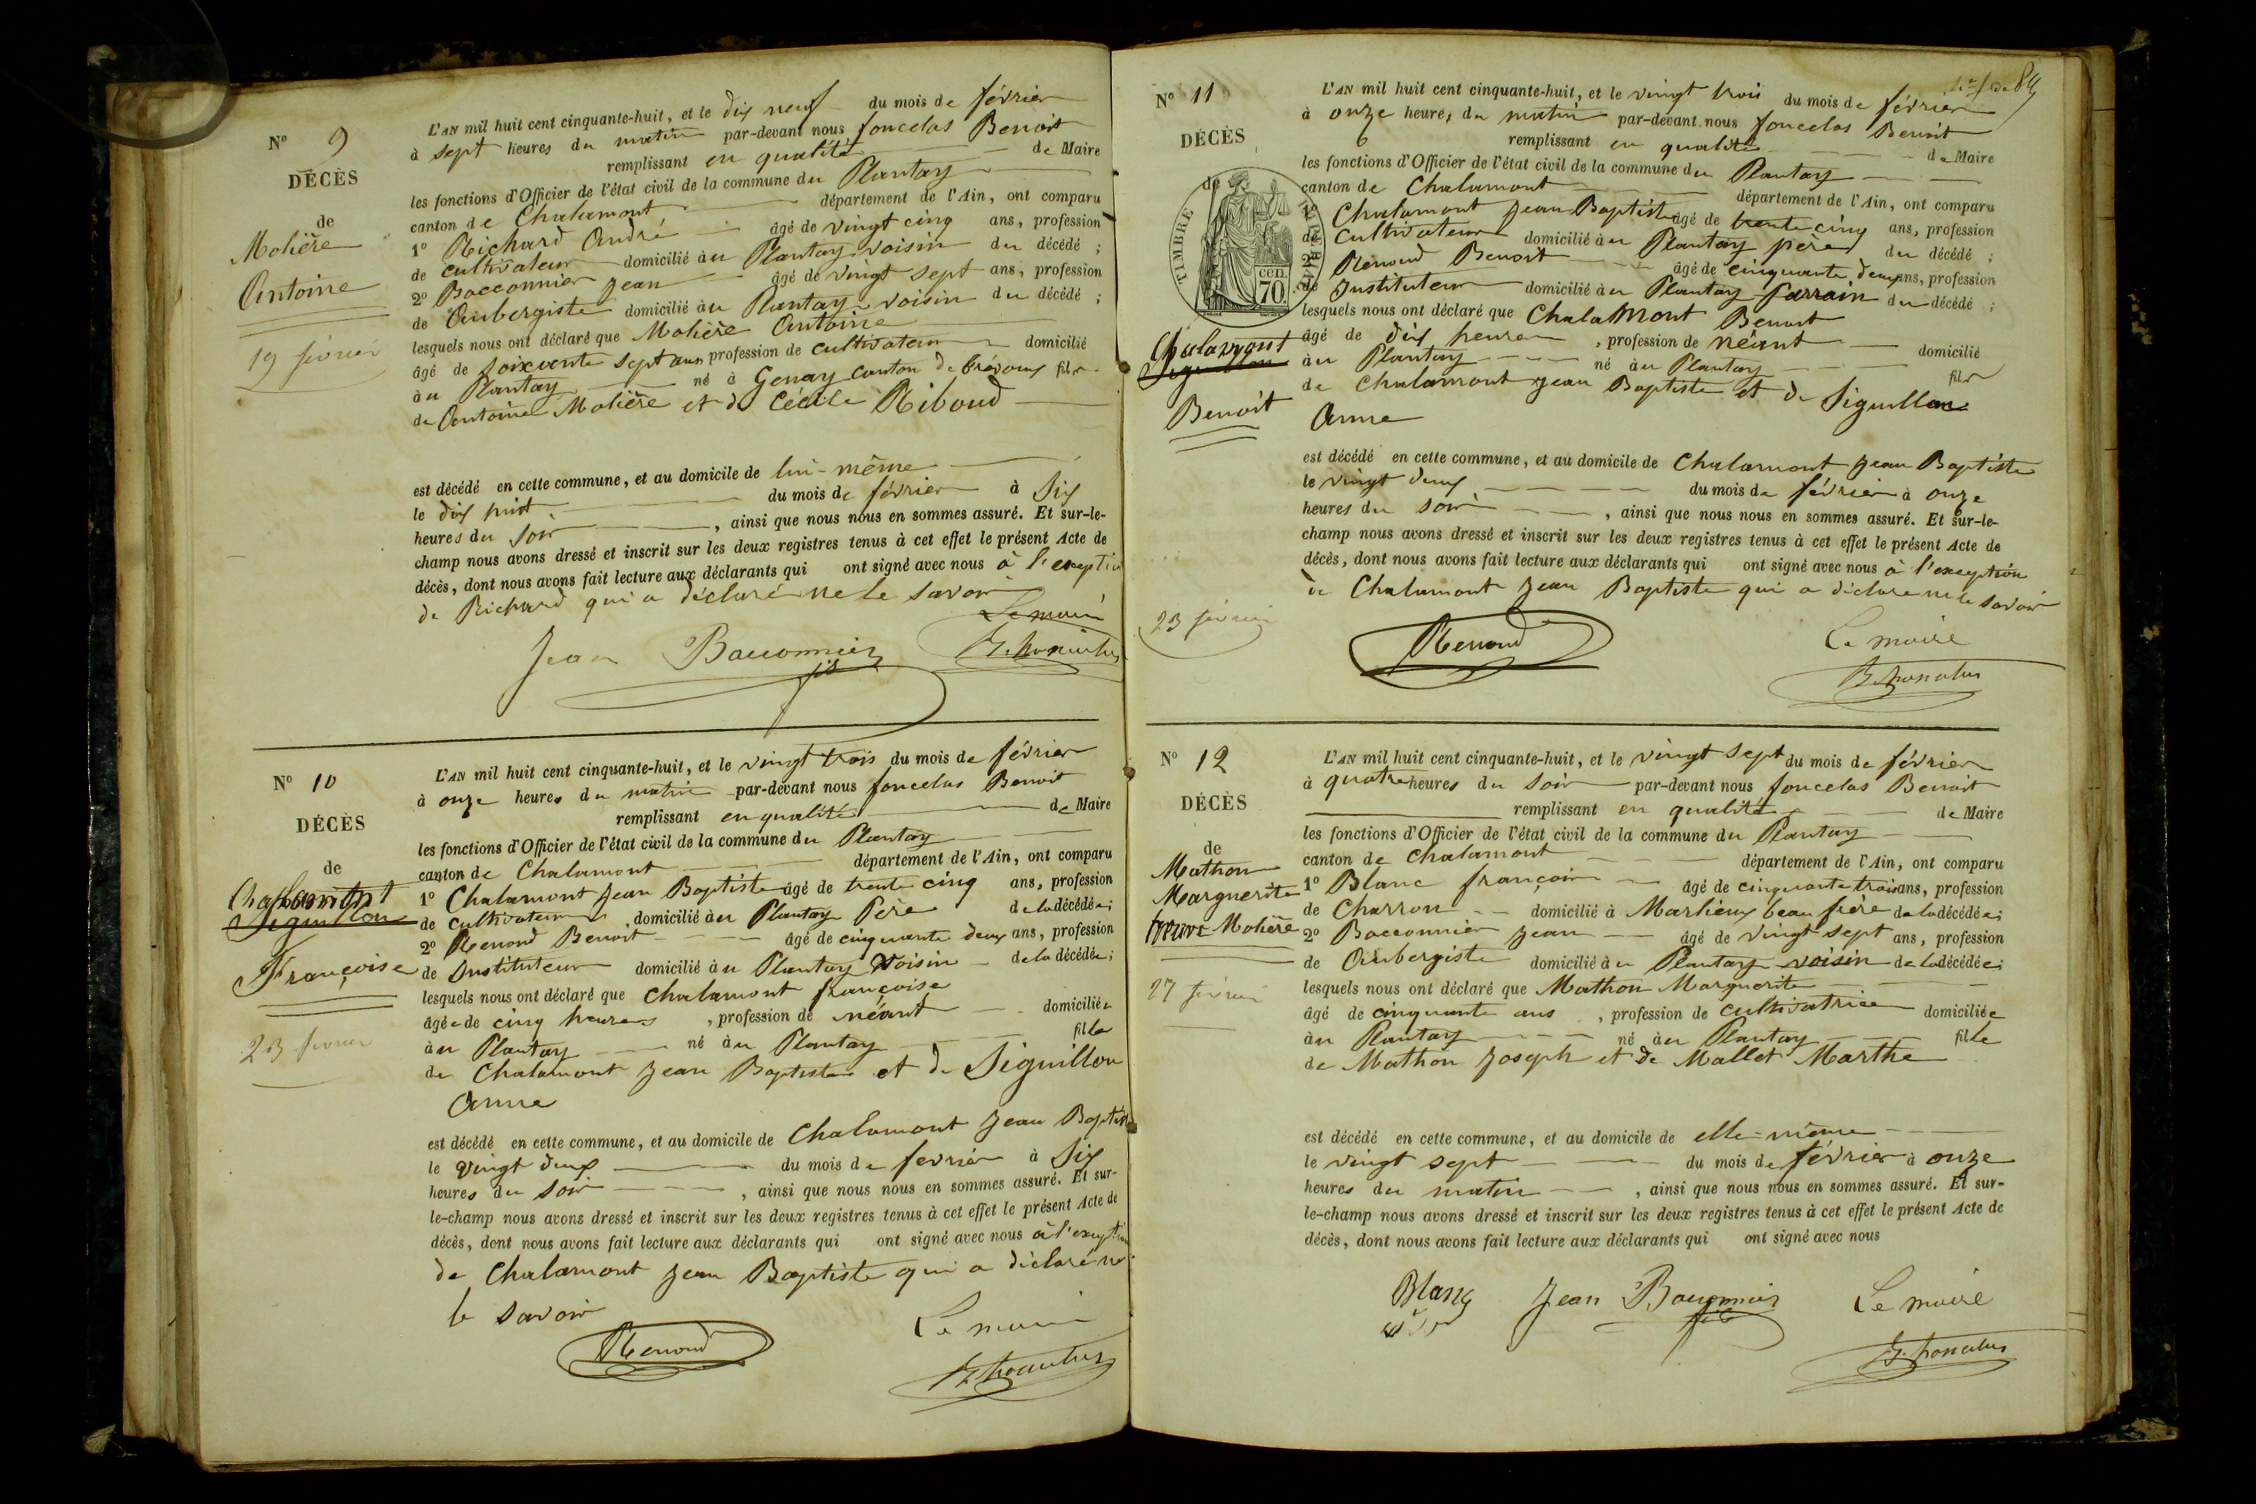 N° 9
DÉCÈS
de
Molière
Antoine
19 février
L'AN mil huit cent cinquante-huit, et le dix neuf du mois de février
à sept heures du matin par-devant nous foncelas Benoit
remplissant en qualité de Maire
les fonctions d'Officier de l'état civil de la commune du Plantay
canton de Chalamont département de l'Ain, ont comparu
1° Richard André âgé de vingt cinq ans, profession
de cultivateur domicilié au Plantay voisin du décédé ;
2° Bacconnier Jean âgé de vingt sept ans, profession
de Aubergiste domicilié au Plantay voisin du décédé ;
lesquels nous ont déclaré que Molière Antoine
âgé de soixante sept ans profession de cultivateur domicilié
au Plantay né à Genay canton de Trévoux fils
de Antoine Molière et de Cécile Riboud
est décédé en cette commune, et au domicile de lui-même
le dix huit du mois de février à Six
heures du soir , ainsi que nous nous en sommes assuré. Et sur-le-
champ nous avons dressé et inscrit sur les deux registres tenus à cet effet le présent Acte de
décès, dont nous avons fait lecture aux déclarants qui ont signé avec nous à l'exception
de Richard qui a déclaré ne le savoir
Le maire
Jean Bacconnier fils
N° 10
DÉCÈS
de
Chalamont
Siguillon
Françoise
23 février
L'AN mil huit cent cinquante-huit, et le vingt trois du mois de février
à onze heures du matin par-devant nous foncelas Benoit
remplissant en qualité de Maire
les fonctions d'Officier de l'état civil de la commune du Plantay
canton de Chalamont département de l'Ain, ont comparu
1° Chalamont Jean Baptiste âgé de trente cinq ans, profession
de cultivateur domicilié au Plantay Père de la décédée ;
2° Renoud Benoit âgé de cinquante deux ans, profession
de Instituteur domicilié au Plantay Voisin de la décédée ;
lesquels nous ont déclaré que Chalamont françoise
âgée de cinq heures , profession de néant domiciliée
au Plantay né au Plantay fille
de Chalamont Jean Baptiste et de Siguillon
Anne
est décédé en cette commune, et au domicile de Chalamont Jean Baptiste
le vingt deux du mois de février à Six
heures du soir , ainsi que nous nous en sommes assuré. Et sur-
le-champ nous avons dressé et inscrit sur les deux registres tenus à cet effet le présent Acte de
décès, dont nous avons fait lecture aux déclarants qui ont signé avec nous à l'exception
de Chalamont Jean Baptiste qui a déclaré ne
le savoir
Renoud
Le maire
N° 11
DÉCÈS
de
TIMBRE
CEN.
70.
Chalamont
Siguillon
Benoit
23 février
L'AN mil huit cent cinquante-huit, et le vingt trois du mois de février
à onze heures du matin par-devant nous foncelas Benoit
remplissant en qualité de Maire
les fonctions d'Officier de l'état civil de la commune du Plantay
canton de Chalamont département de l'Ain, ont comparu
1° Chalamont Jean Baptiste âgé de trente cinq ans, profession
de Cultivateur domicilié au Plantay père du décédé ;
2° Renoud Benoit âgé de cinquante deux ans, profession
de Instituteur domicilié au Plantay parrain du décédé ;
lesquels nous ont déclaré que Chalamont Benoit
âgé de dix heures , profession de néant domicilié
au Plantay né au Plantay fils
de Chalamont Jean Baptiste et de Siguillon
Anne
est décédé en cette commune, et au domicile de Chalamont Jean Baptiste
le vingt deux du mois de février à onze
heures du soir , ainsi que nous nous en sommes assuré. Et sur-le-
champ nous avons dressé et inscrit sur les deux registres tenus à cet effet le présent Acte de
décès, dont nous avons fait lecture aux déclarants qui ont signé avec nous à l'exception
de Chalamont Jean Baptiste qui a déclaré ne le savoir
Renoud
Le maire
N° 12
DÉCÈS
de
Mathon
Marguerite
veuve Molière
27 février
L'AN mil huit cent cinquante-huit, et le vingt sept du mois de février
à quatre heures du soir par-devant nous foncelas Benoit
remplissant en qualité de Maire
les fonctions d'Officier de l'état civil de la commune du Plantay
canton de Chalamont département de l'Ain, ont comparu
1° Blanc françois âgé de cinquante trois ans, profession
de Charron domicilié à Marlieux beau frère de la décédée ;
2° Bacconnier Jean âgé de vingt sept ans, profession
de Aubergiste domicilié au Plantay voisin de la décédée ;
lesquels nous ont déclaré que Mathon Marguerite
âgé de cinquante ans , profession de cultivatrice domiciliée
au Plantay né au Plantay fille
de Mathon Joseph et de Mallet Marthe
est décédé en cette commune, et au domicile de elle-même
le vingt sept du mois de février à onze
heures du matin , ainsi que nous nous en sommes assuré. Et sur-
le-champ nous avons dressé et inscrit sur les deux registres tenus à cet effet le présent Acte de
décès, dont nous avons fait lecture aux déclarants qui ont signé avec nous
Blanc Jean Bacconnier fils Le maire